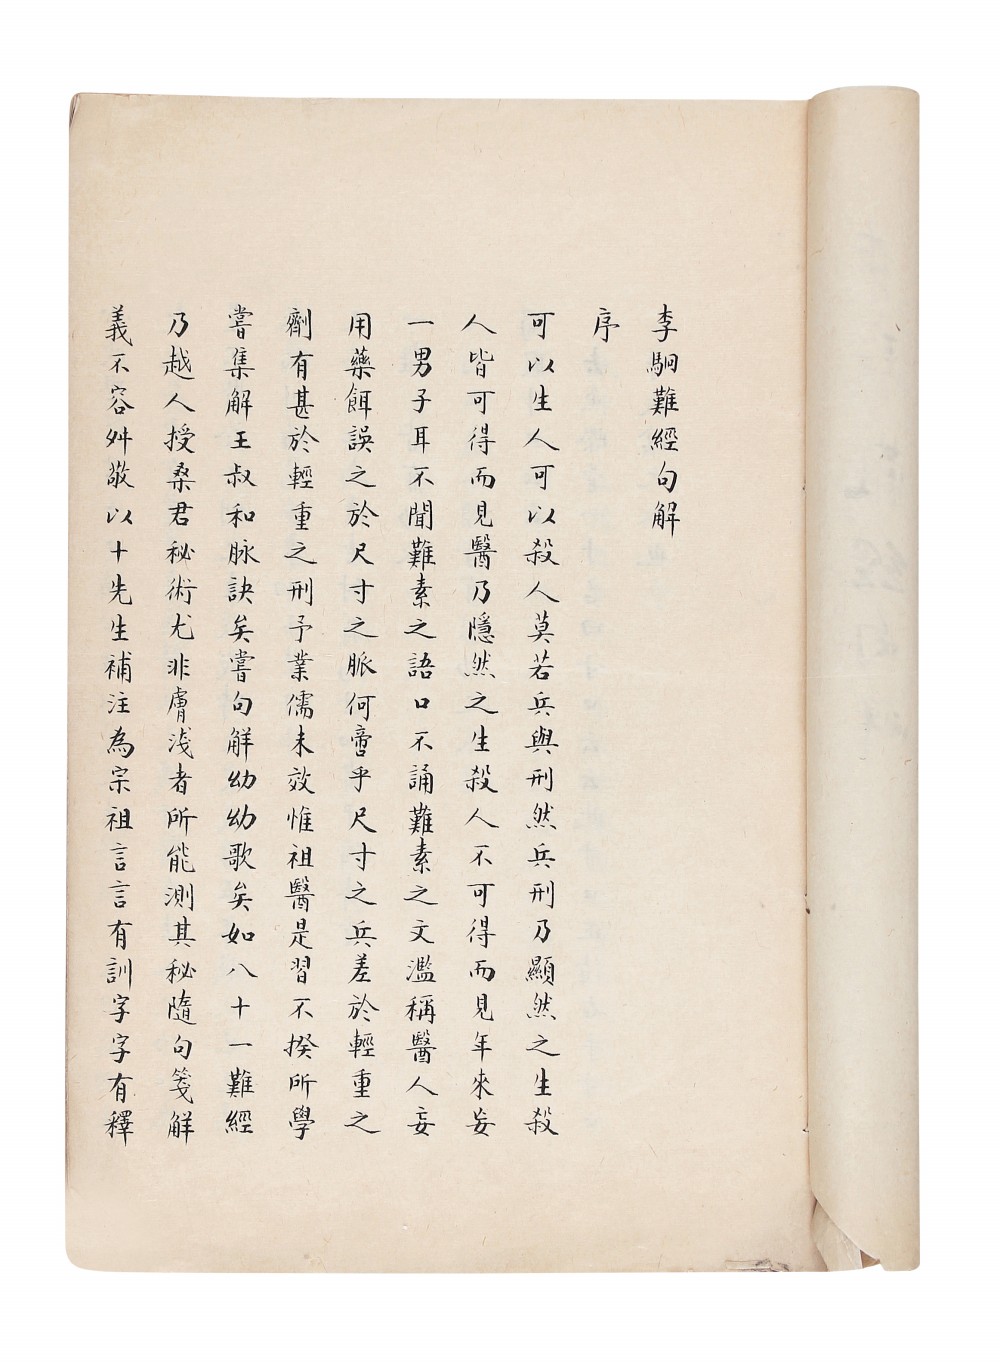 李駉難經句解
序
可以生人可以殺人莫若兵與刑然兵刑乃顯然之生殺
人皆可得而見醫乃隱然之生殺人不可得而見年來妄
一男子耳不聞難素之語口不誦難素之文濫稱醫人妄
用藥餌誤之於尺寸之脈何啻乎尺寸之兵差於輕重之
劑有甚於輕重之刑予業儒未效惟祖醫是習不揆所學
嘗集解王叔和脉訣矣嘗句解幼幼歌矣如八十一難經
乃越人授桑君秘術尤非膚淺者所能測其秘隨句箋解
義不容舛敬以十先生補注為宗祖言言有訓字字有釋